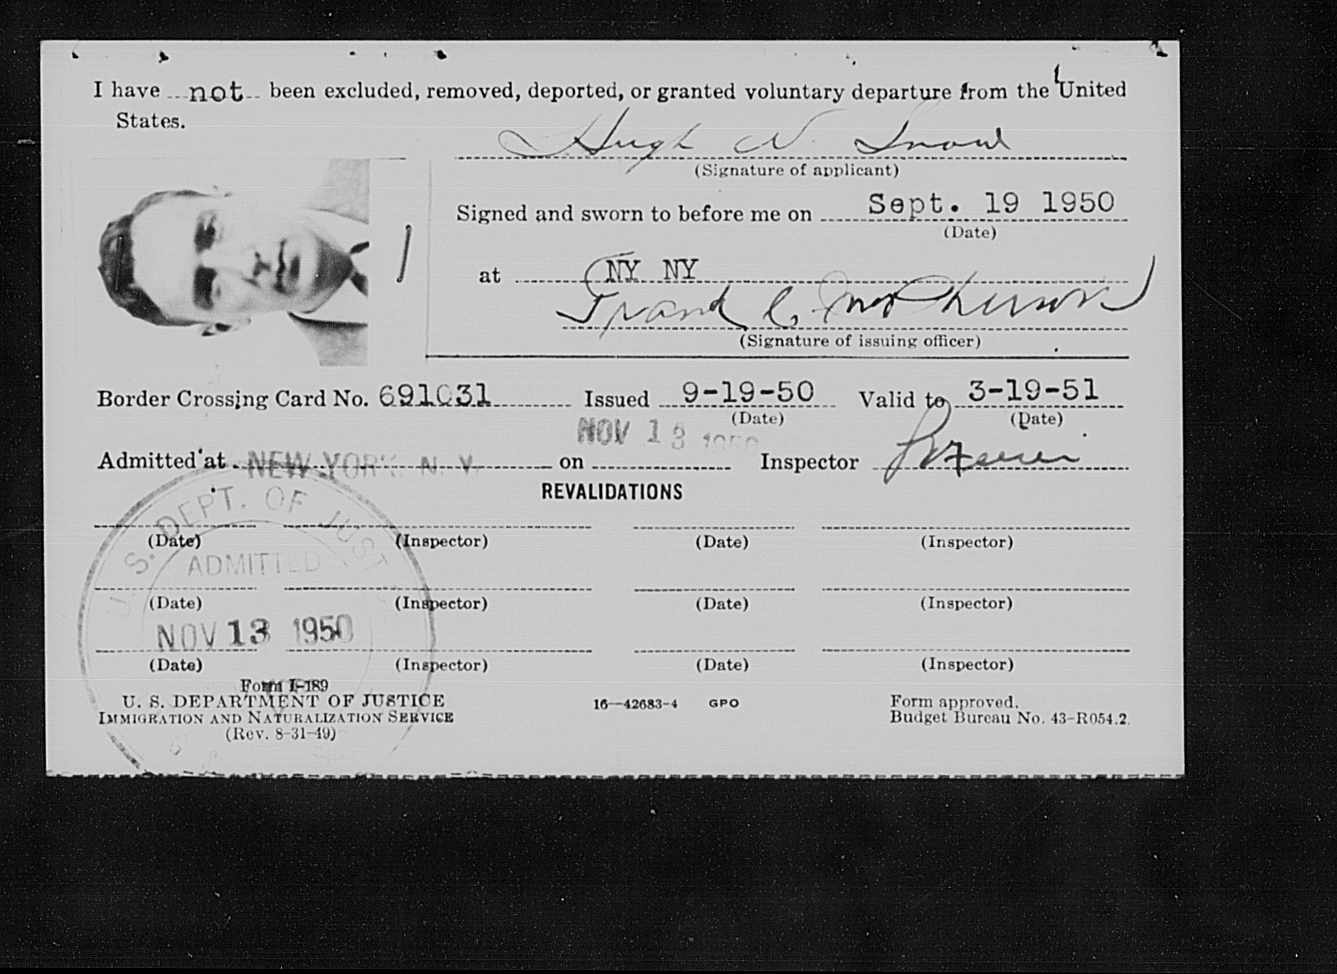 I have not been excluded, removed, deported, or granted voluntary departure from the United
States.
Hugh N. Snow
(Signature of applicant)
Signed and sworn to before me on Sept. 19 1950
(Date)
at NY NY
Frank C. McPherson
(Signature of issuing officer)
Border Crossing Card No. 691031 Issued 9-19-50 Valid to 3-19-51
(Date) (Date)
NOV 13 1950
Admitted at NEW YORK N. Y. on Inspector
REVALIDATIONS
U. S. DEPT. OF JUST
(Date) (Inspector) (Date) (Inspector)
ADMITTED
(Date) (Inspector) (Date) (Inspector)
NOV 13 1950
(Date) (Inspector) (Date) (Inspector)
Form I-189
U. S. DEPARTMENT OF JUSTICE
IMMIGRATION AND NATURALIZATION SERVICE
(Rev. 8-31-49)
16—42683-4 GPO
Form approved.
Budget Bureau No. 43-R054.2.